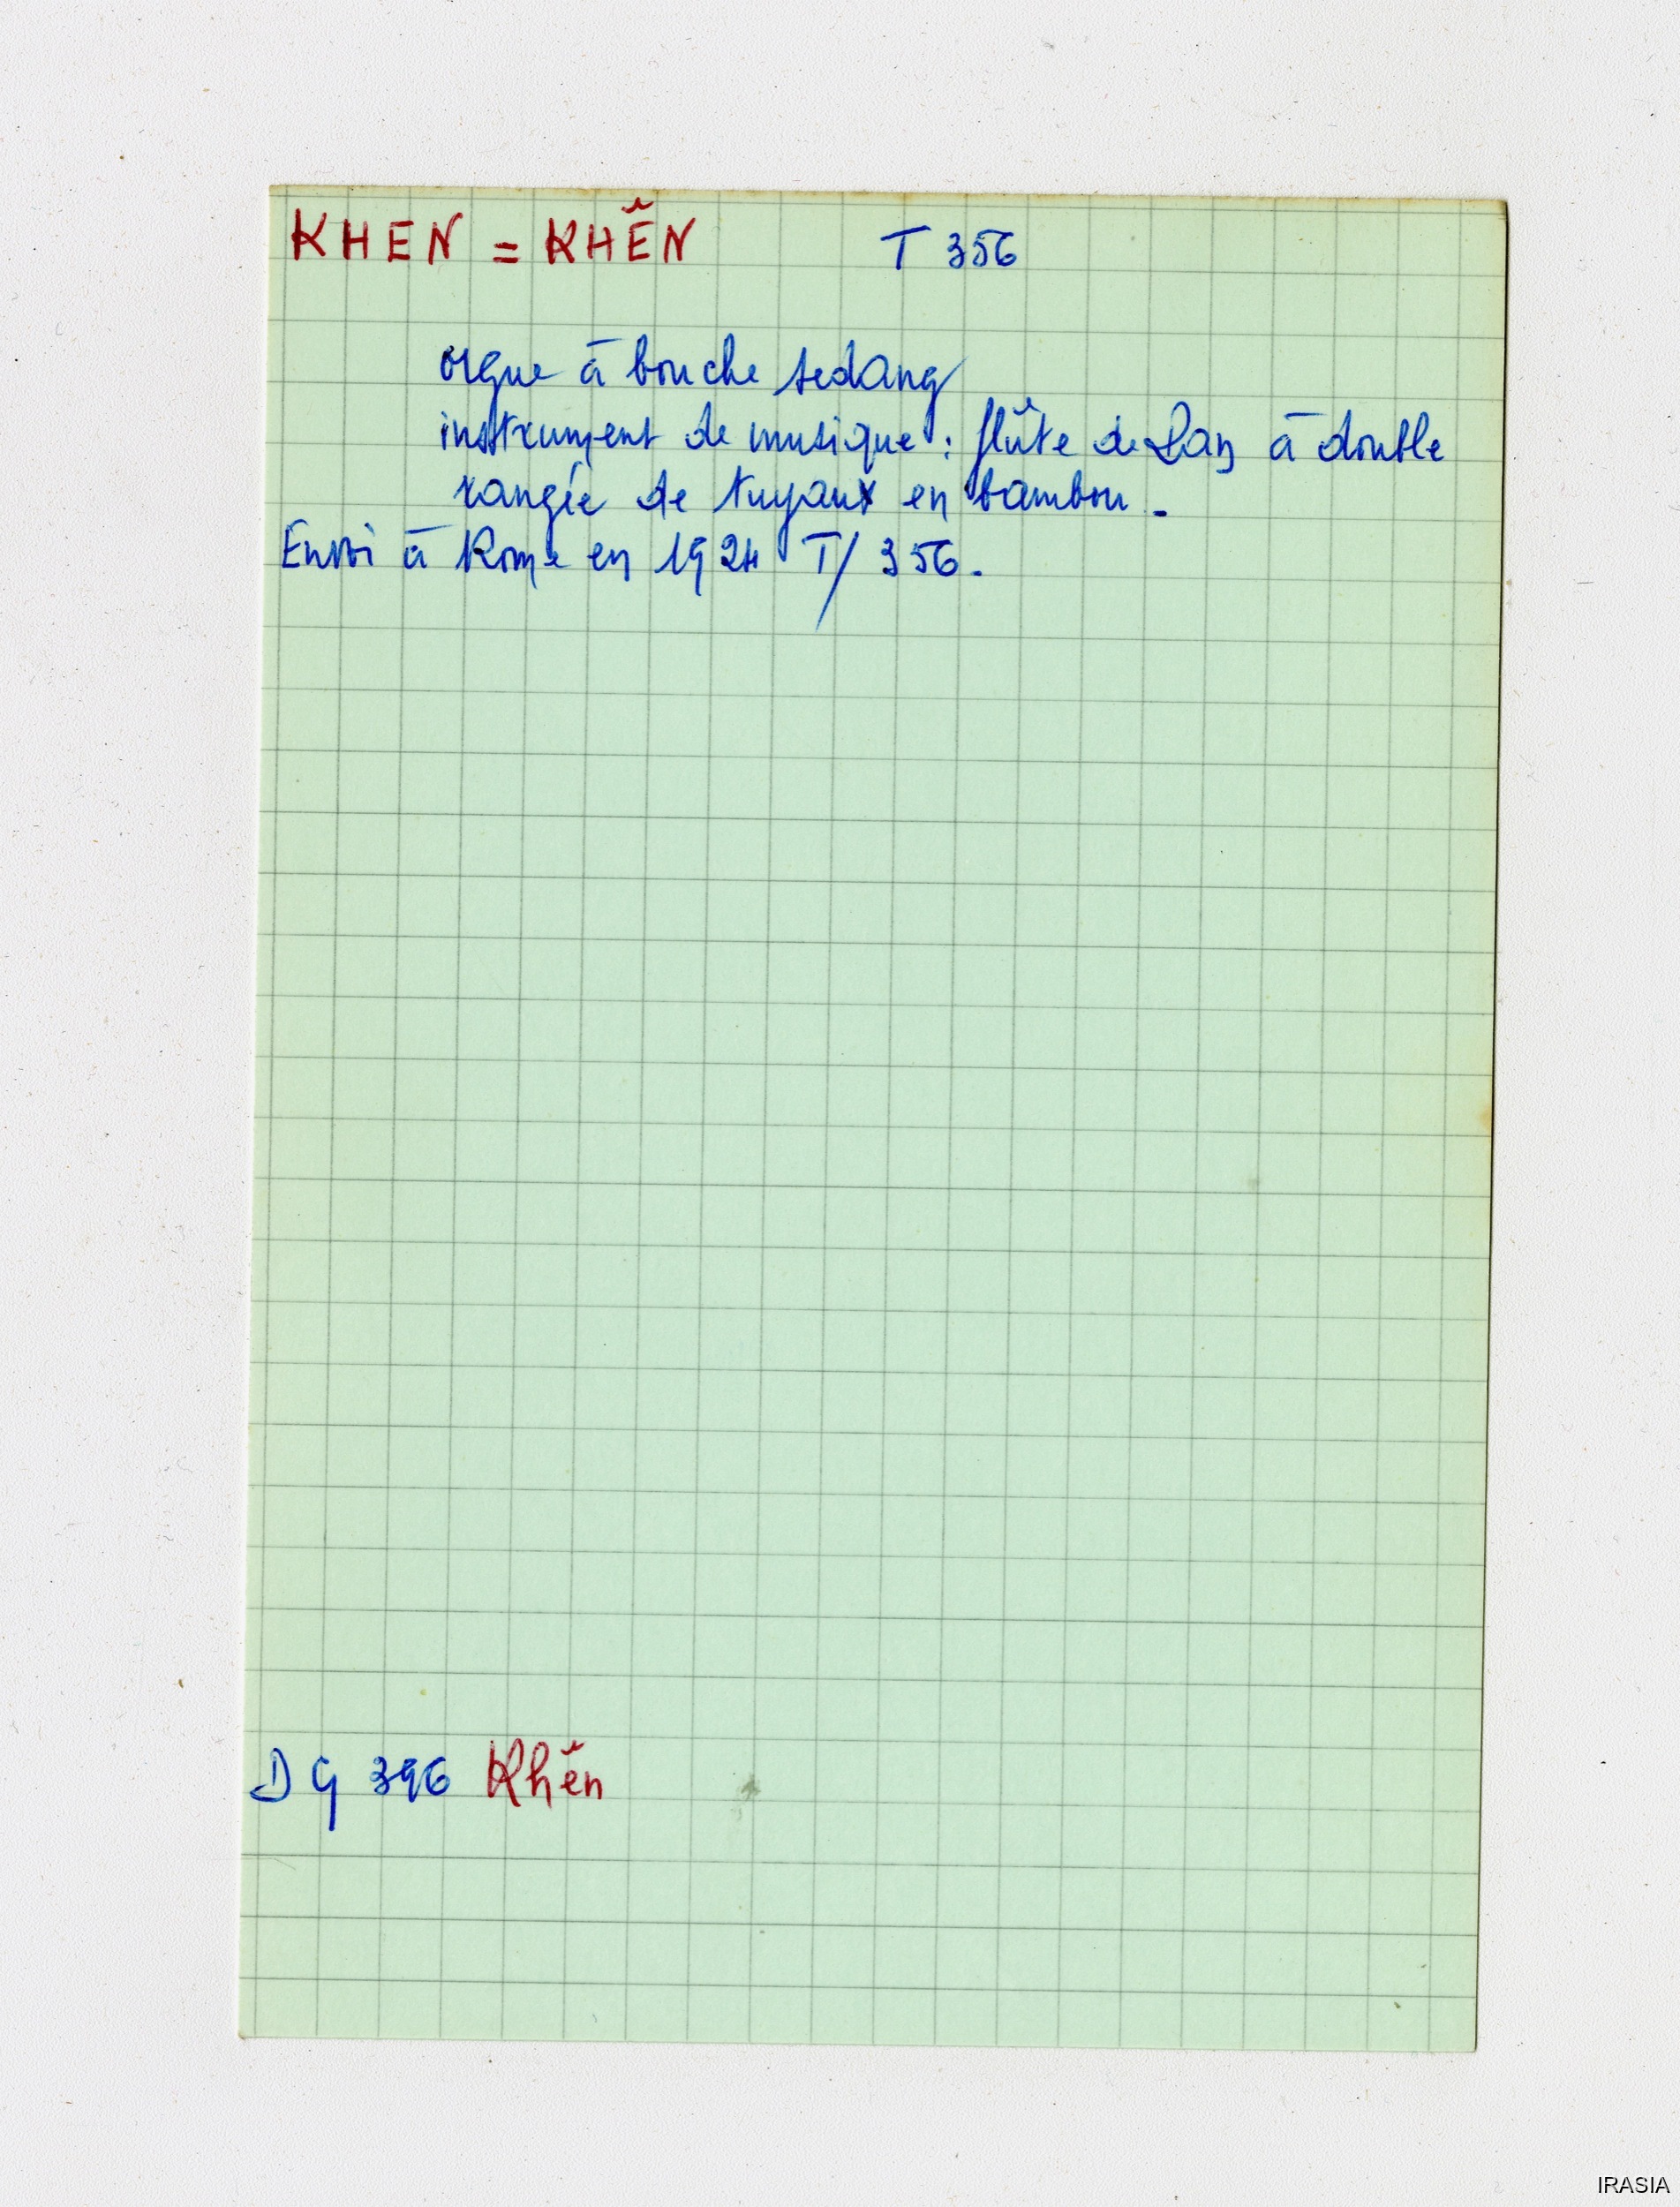 KHEN = KHĒ̆N T 356
orgue à bouche sedang
instrument de musique : flûte de Pan à double
rangée de tuyaux en bambou.
Envoi à Rome en 1924 T/ 356.
DG 396 Khē̆n
IRASIA